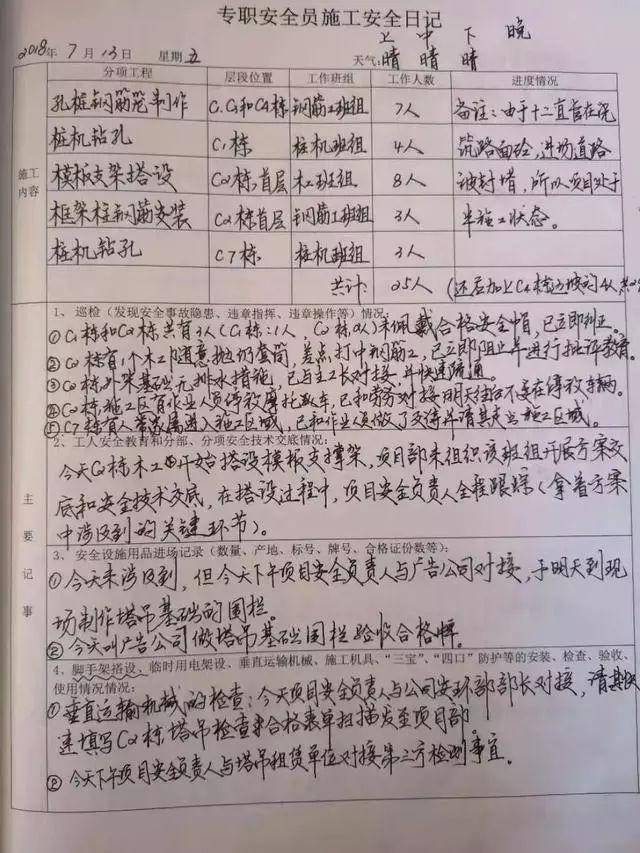 专职安全员施工安全日记
上 中 下 晚
2018年 7月13日 星期五 天气:晴 晴 晴
分项工程 层段位置 工作班组 工作人数 进度情况
施工内容
孔桩钢筋笼制作 钢筋工班组 7人 备注:由于十二直管在浇
桩机钻孔 C1栋 桩机班组 4人 筑路面砼,进场道路
模板支架搭设 C2栋首层 木工班组 8人 被封堵,所以项目处于
框架柱钢筋安装 C2栋首层 钢筋工班组 3人 半施工状态。
桩机钻孔 C7栋 桩机班组 3人
共计: 25人
主要记事
1、巡检(发现安全事故隐患、违章指挥、违章操作等)情况:
① C1栋和C2栋共有3人(C1栋:1人,C2栋2人)未佩戴合格安全帽,已立即纠正。
② C2栋有1个木工随意抛扔套筒,差点打中钢筋工,已立即阻止并进行批评教育。
③ C2栋外架基础无排水措施,已与主工长对接,并快速疏通。
④ C2栋施工区有作业人员停放摩托车,已和劳务对接明天往后不要在停放车辆。
⑤ C7栋有人带家属进入施工区域,已和作业人员做了交待并请其走出施工区域。
2、工人安全教育和分部、分项安全技术交底情况:
今天C2栋木工开始搭设模板支撑架,项目部未组织该班组开展方案交
底和安全技术交底,在搭设过程中,项目安全负责人全程跟踪(拿着方案
中涉及到的关键环节)。
3、安全设施用品进场记录(数量、产地、标号、牌号、合格证份数等):
① 今天未涉及到,但今天下午项目安全负责人与广告公司对接,于明天到现
场制作塔吊基础的围栏。
② 今天叫广告公司做塔吊基础围栏验收合格牌。
4、脚手架搭设、临时用电架设、垂直运输机械、施工机具、“三宝”、“四口”防护等的安装、检查、验收、
使用情况情况:
① 垂直运输机械的检查:今天项目安全负责人与公司安环部部长对接,请其快
速填写C2栋塔吊检查合格表单扫描发至项目部。
② 今天下午项目安全负责人与塔吊租赁单位对接第三方检测事宜。